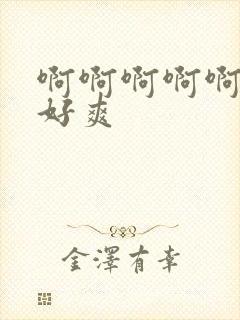 啊啊啊啊啊
好爽
金澤有幸